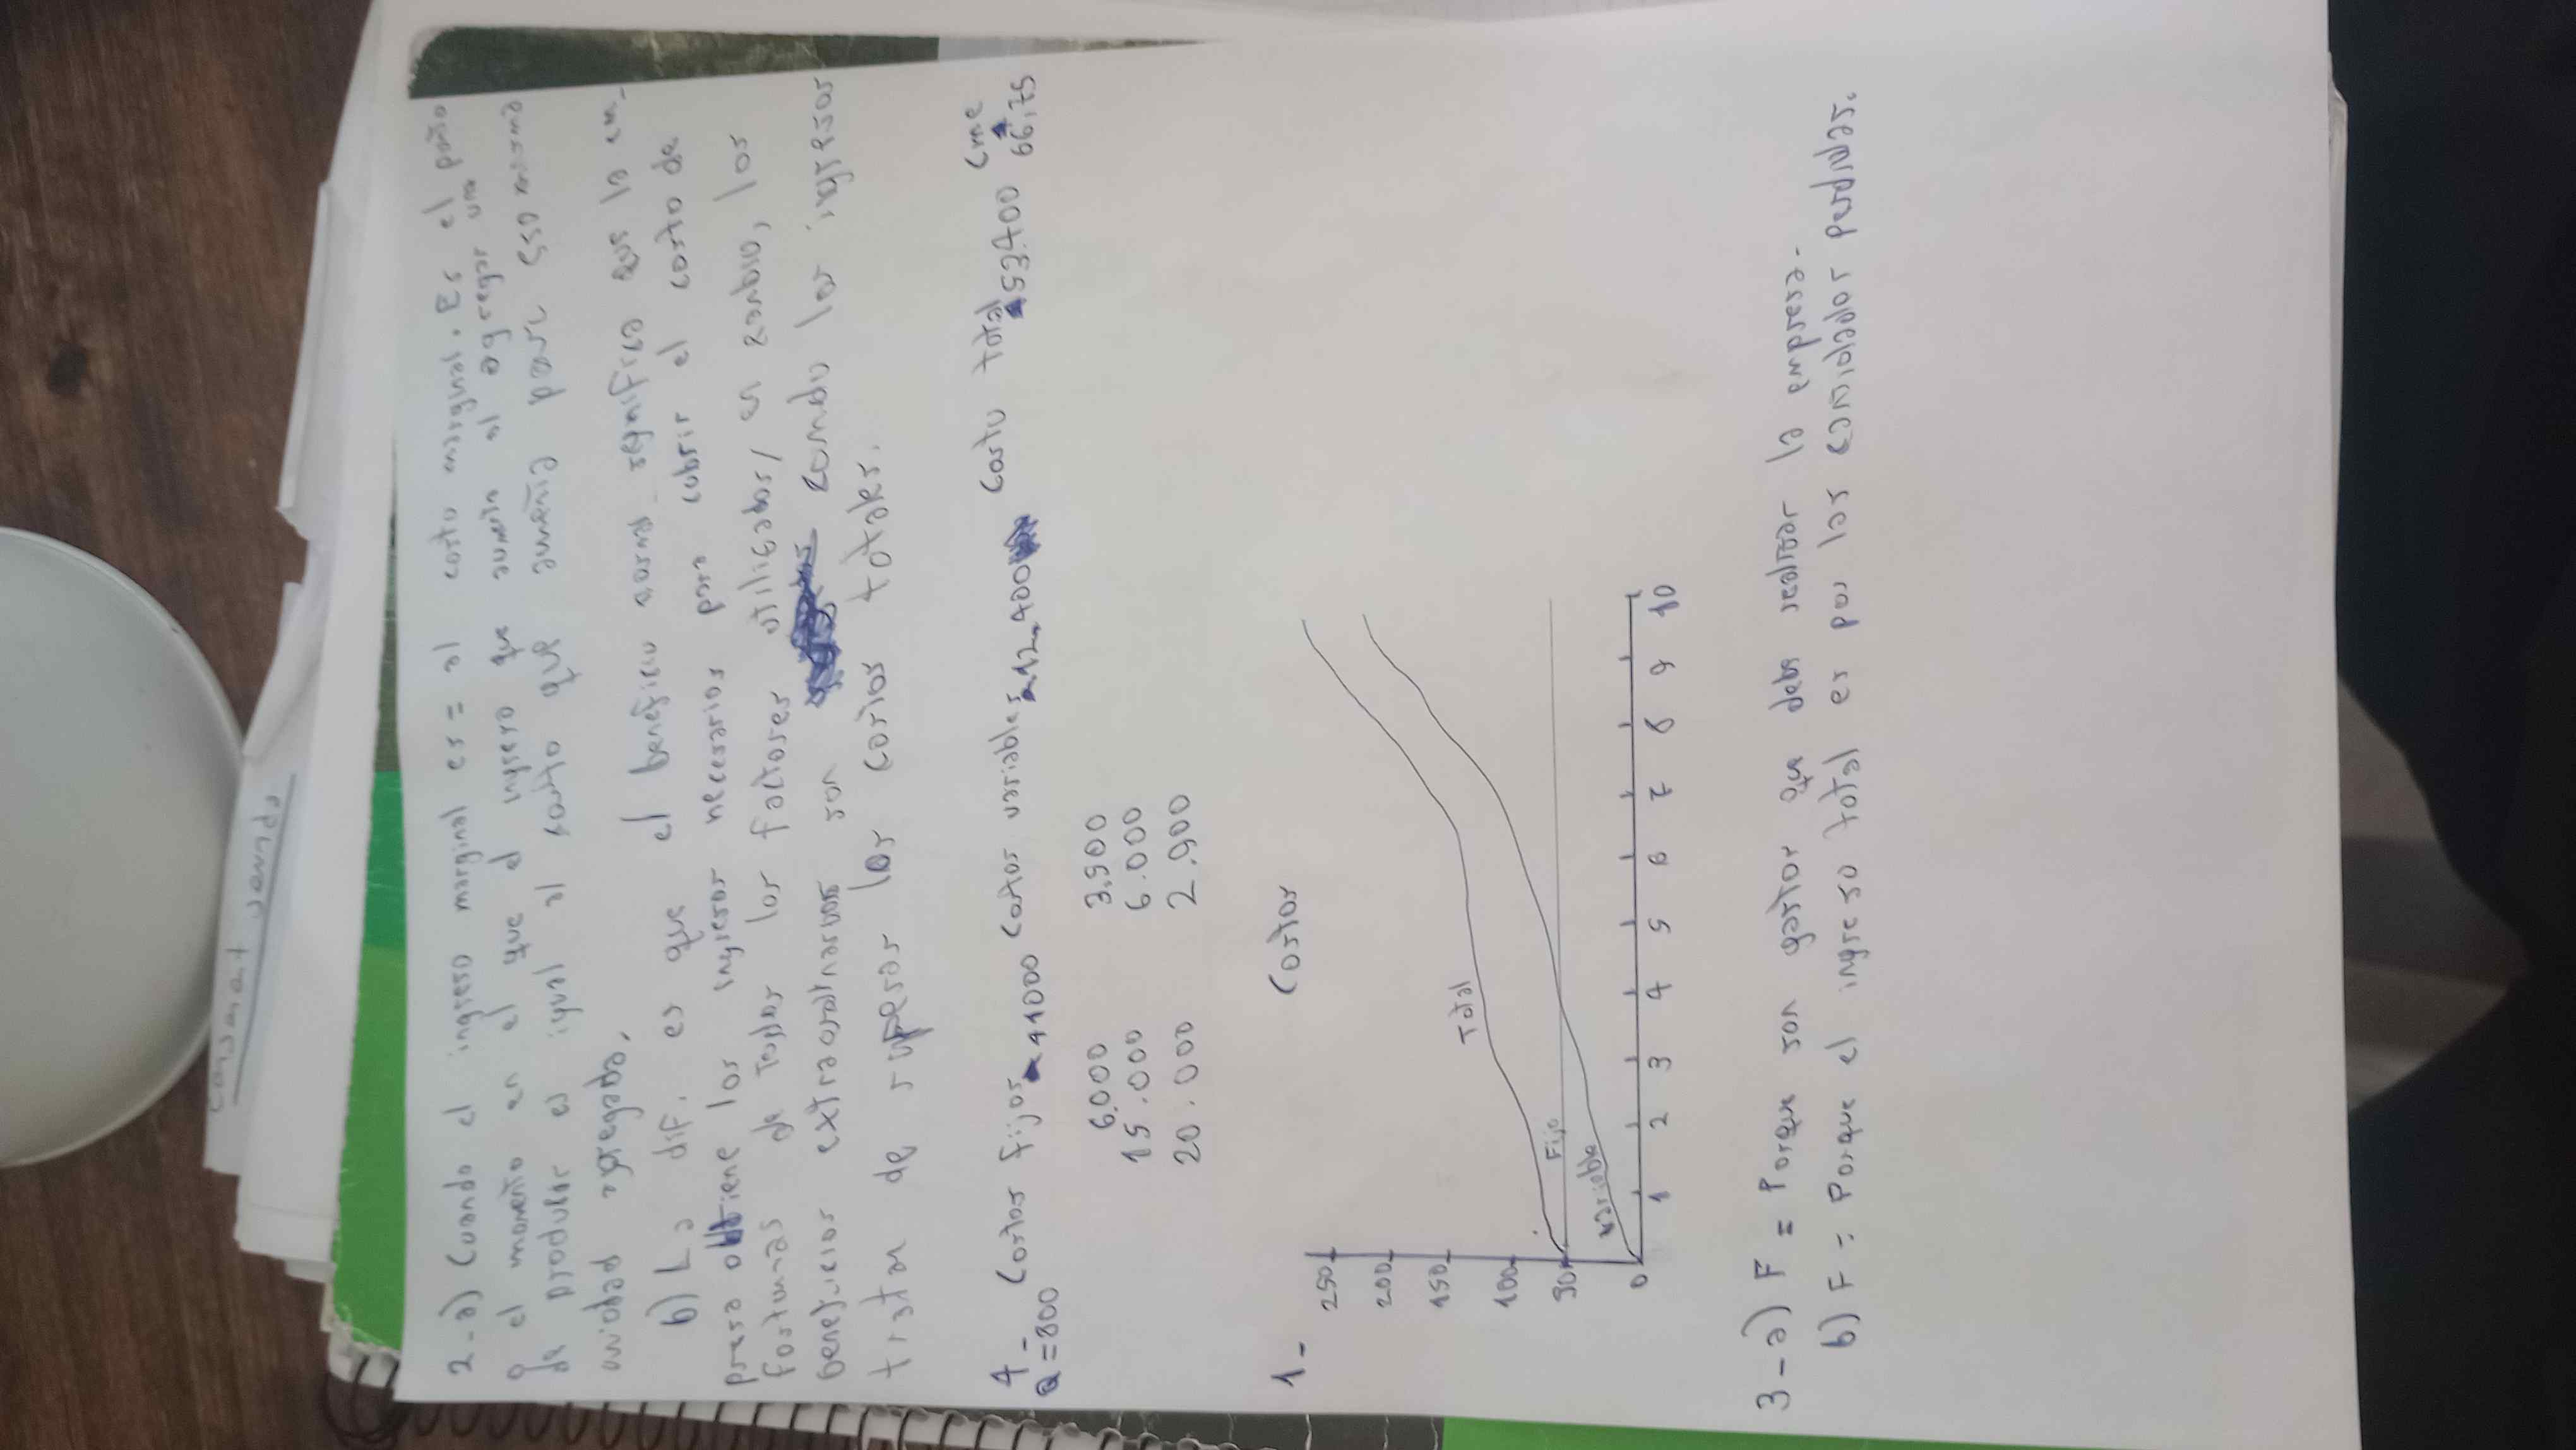 2-a) Cuando el ingreso marginal es = al costo marginal. Es el punto
o el momento en el que el ingreso que aumenta al agregar una
de producir es igual al costo que aumenta para esa misma
unidad agregada.
b) La dif. es que el beneficio normal significa que la em-
presa obtiene los ingresos necesarios para cubrir el costo de
de todos los factores utilizados/ en cambio, los
beneficios extraordinarios son cuando los ingresos
tratan de superar los costos totales.
4- Costos fijos 41000 Costos variables 12.400 Costo total 53.400 Cme
Q=800 66,75
6.000 3.500
15.000 6.000
20.000 2.900
1- Costos
250
200
150
100
30
0
Total
Fijo
Variable
1 2 3 4 5 6 7 8 9 10
3-a) F = Porque son gastos que debe realizar la empresa.
b) F = Porque el ingreso total es por las cantidades